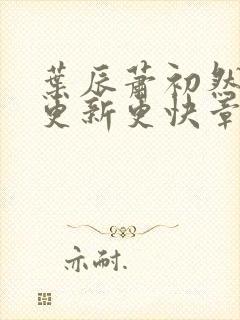 葉辰蕭初然
更新更快章
亦耐.